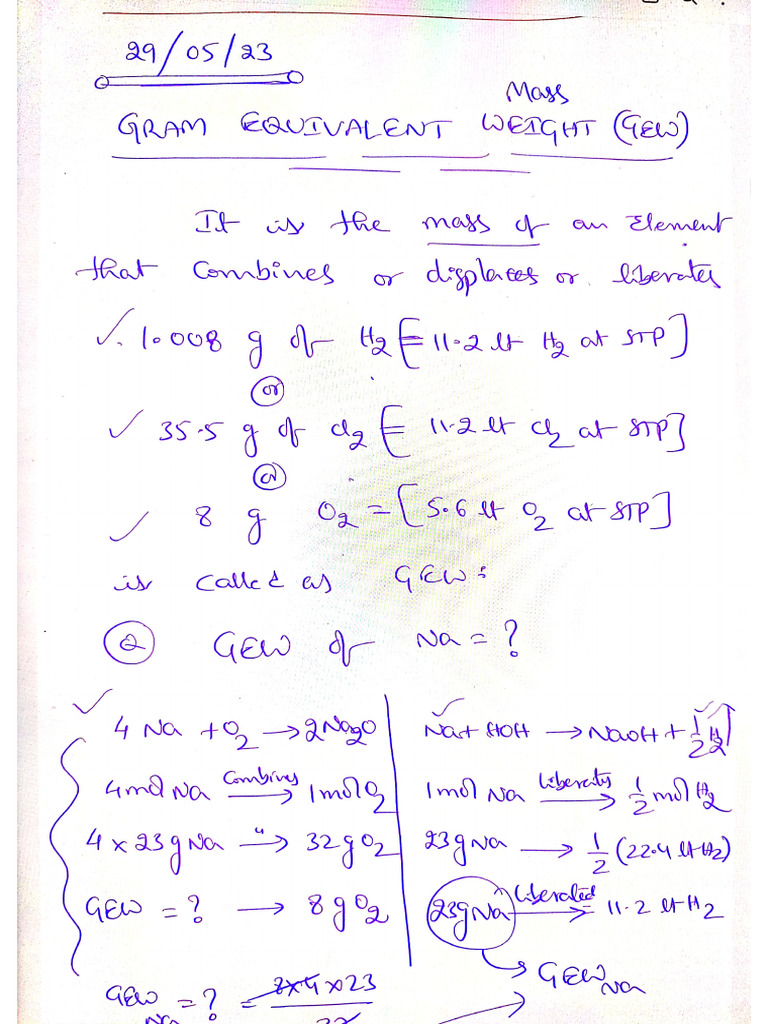 29/05/23
Mass
GRAM EQUIVALENT WEIGHT (GEW)
It is the mass of an Element
that Combines or displaces or liberates
✓. 1.008 g of H₂ [= 11.2 lt H₂ at STP]
(or)
✓ 35.5 g of Cl₂ [= 11.2 lt Cl₂ at STP]
(or)
✓ 8 g O₂ = [5.6 lt O₂ at STP]
is called as GEW:
Q GEW of Na = ?
✓ 4 Na + O₂ → 2Na₂O
4 mol Na Combines → 1 mol O₂
4 × 23 g Na " → 32 g O₂
GEW = ? → 8 g O₂
GEW Na = ? = 8×4×23 / 32
✓ Na + HOH → NaOH + 1/2 H₂↑
1 mol Na Liberates → 1/2 mol H₂
23 g Na → 1/2 (22.4 lt H₂)
23g Na Liberated → 11.2 lt H₂
GEW Na